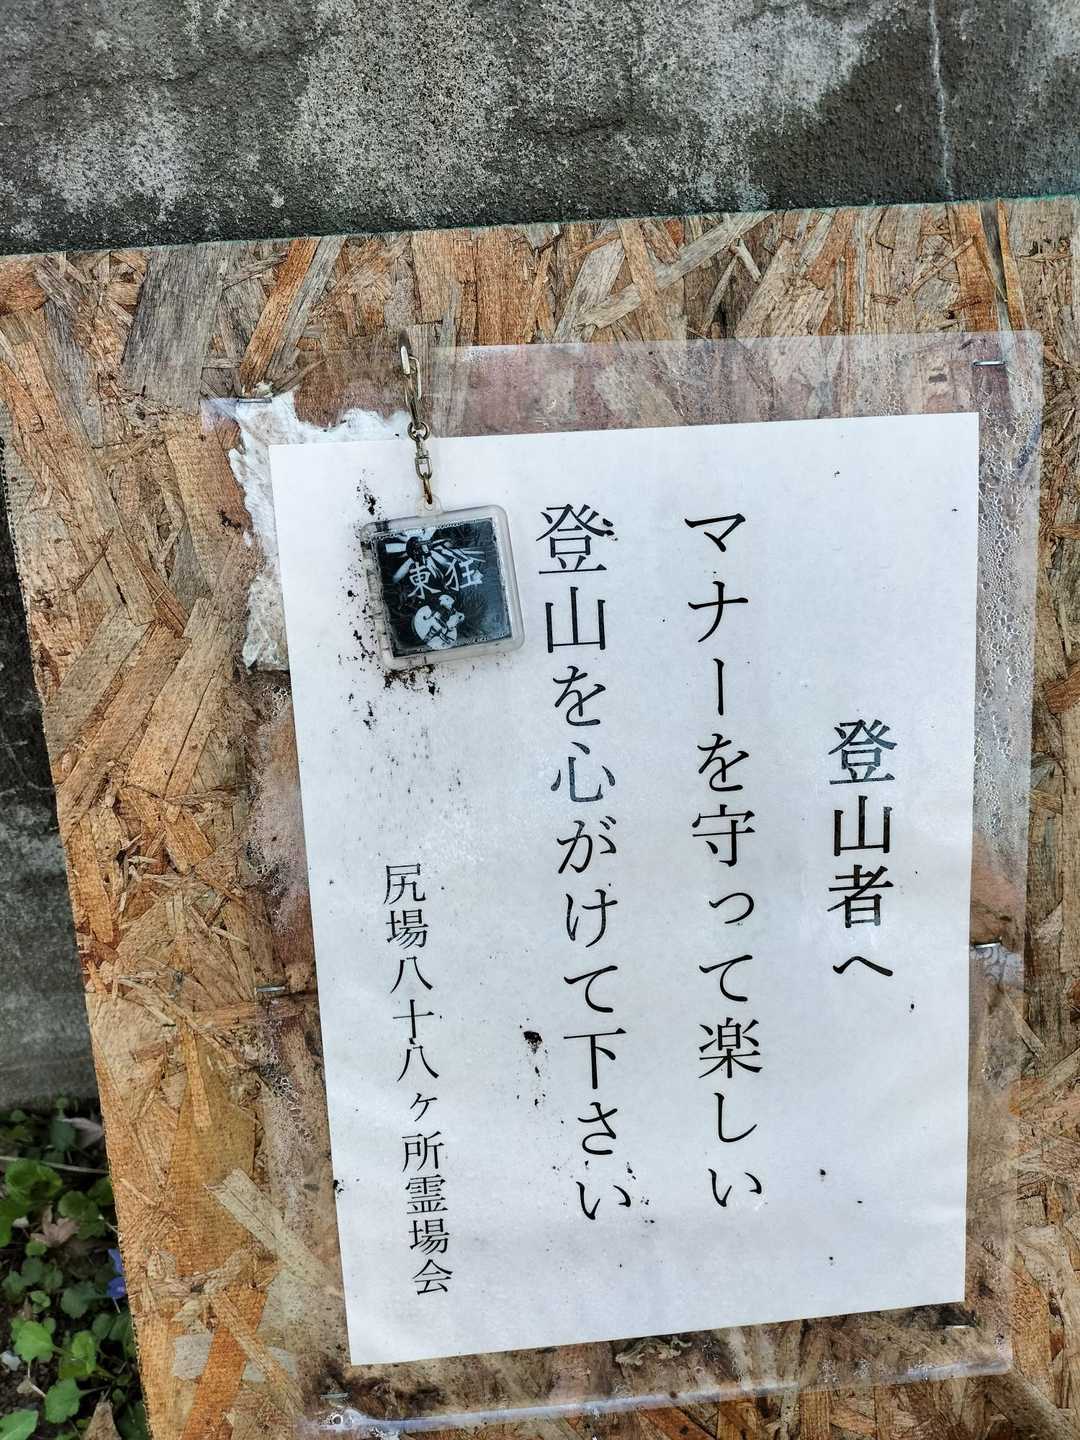 登山者へ
マナーを守って楽しい
登山を心がけて下さい
尻場八十八ヶ所霊場会
東狂